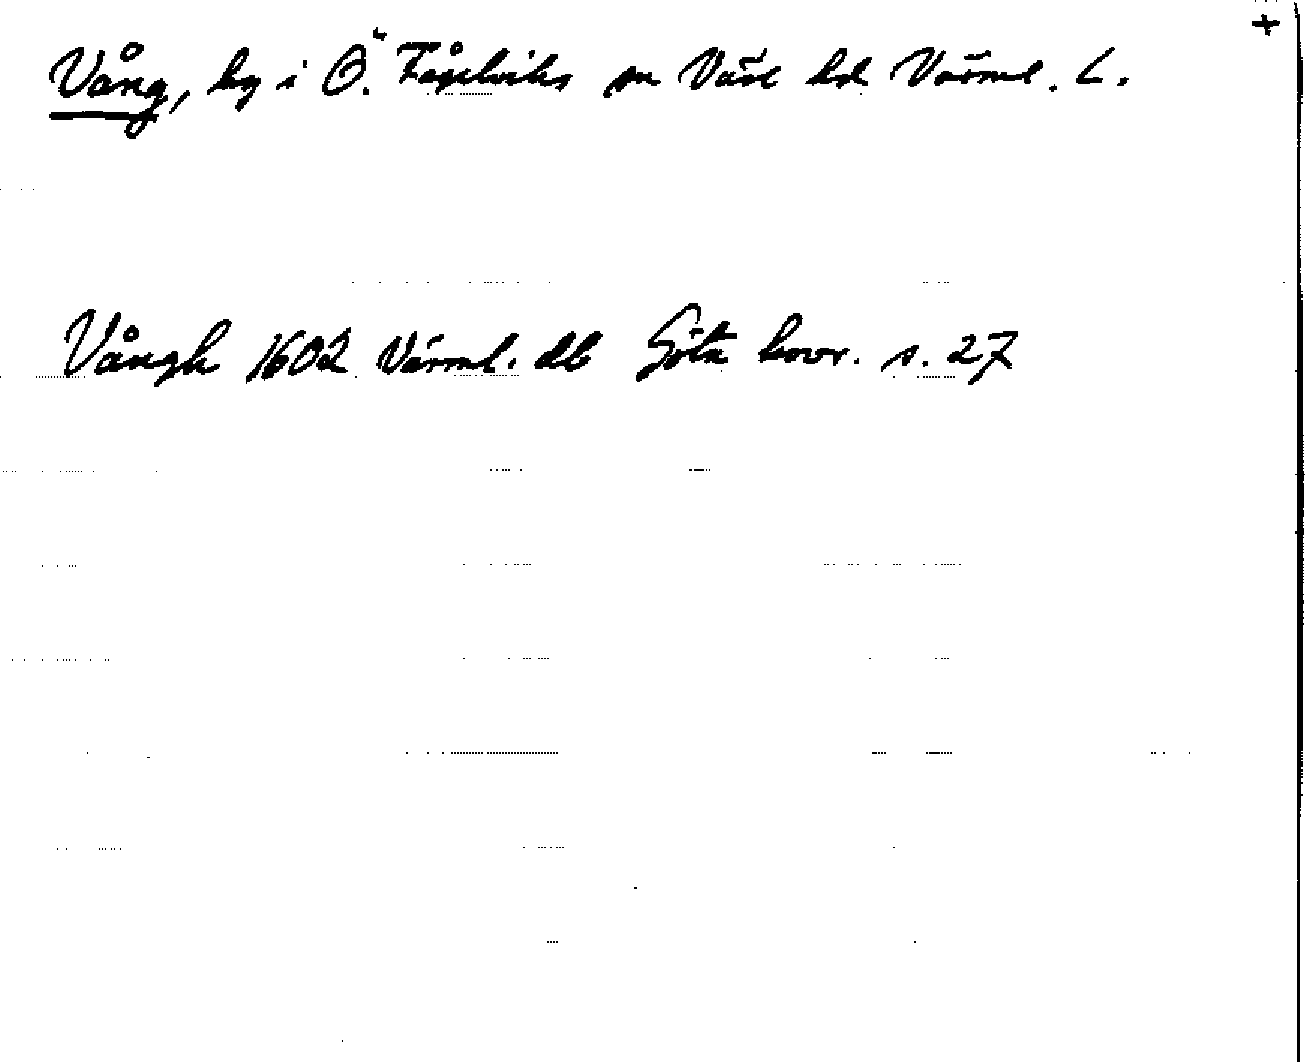 +
Vång, by i Ö. Fågelviks sn Väse hd Värml. L.
Vångh 1602 Värml. db Göta hovr. s. 27